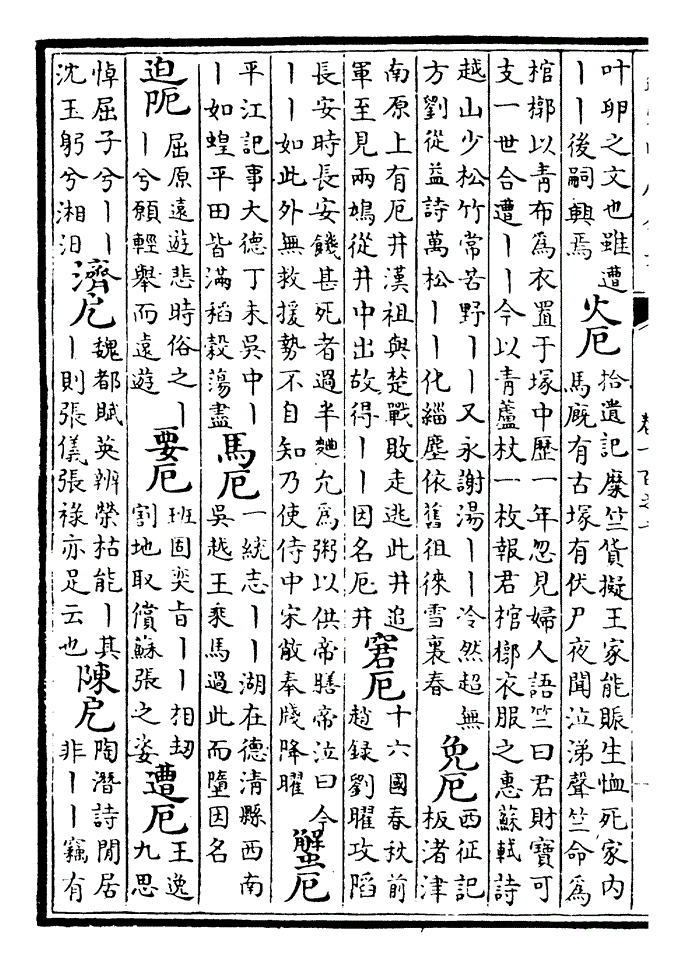 叶卵之文也雖遭
丨丨後嗣興焉
火厄
拾遺記糜竺貨擬王家能賑生恤死家内
馬廄有古塚有伏尸夜聞泣涕聲竺命爲
棺槨以青布爲衣置于塚中歷一年忽見婦人語竺曰君財寶可
支一世合遭丨丨今以青蘆杖一枚報君棺槨衣服之惠蘇軾詩
越山少松竹常苦野丨丨又永謝湯丨丨冷然超無
方劉從益詩萬松丨丨化緇塵依舊徂徠雪裹春
免厄
西征記
板渚津
南原上有厄井漢祖與楚戰敗走逃此井追
軍至見兩鳩從井中出故得丨丨因名厄井
窘厄
十六國春秋前
趙録劉曜攻陷
長安時長安饑甚死者過半麯允爲粥以供帝膳帝泣曰今
丨丨如此外無救援勢不自知乃使侍中宋敞奉牋降曜
蟹厄
平江記事大德丁未吳中丨
丨如蝗平田皆滿稻穀蕩盡
馬厄
一統志丨丨湖在德清縣西南
吳越王乘馬過此而墮因名
迫阨
屈原遠遊悲時俗之丨
丨兮願輕舉而遠遊
要厄
班固奕旨丨丨相劫
割地取償蘇張之姿
遭厄
王逸
九思
悼屈子兮丨丨
沈玉躬兮湘汨
濟厄
魏都賦英辨榮枯能丨其
丨則張儀張祿亦足云也
陳厄
陶潛詩閒居
非丨丨竊有